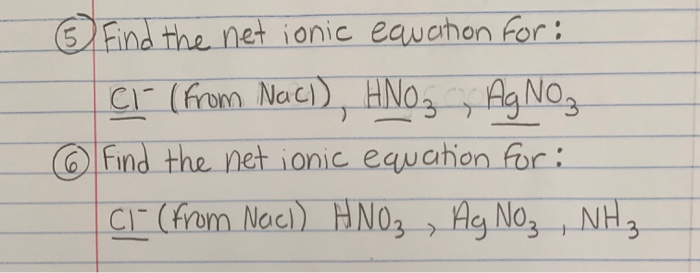 ⑤ Find the net ionic equation for:
Cl⁻ (from NaCl), HNO₃, AgNO₃
⑥ Find the net ionic equation for:
Cl⁻ (from NaCl) HNO₃, AgNO₃, NH₃